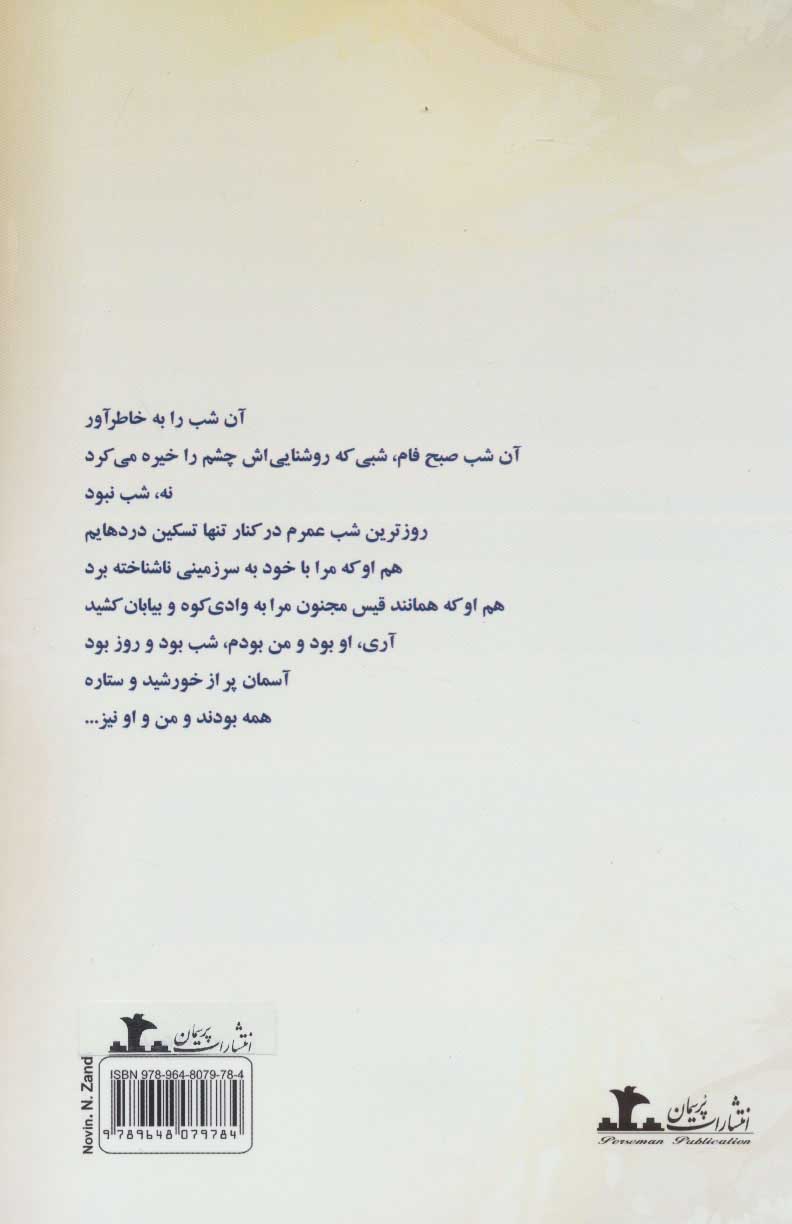 آن شب را به خاطرآور
آن شب صبح فام، شبی که روشنایی‌اش چشم را خیره می‌کرد
نه، شب نبود
روزترین شب عمرم در کنار تنها تسکین دردهایم
هم او که مرا با خود به سرزمینی ناشناخته برد
هم او که همانند قیس مجنون مرا به وادی کوه و بیابان کشید
آری، او بود و من بودم، شب بود و روز بود
آسمان پر از خورشید و ستاره
همه بودند و من و او نیز...
انتشارات پرسمان
ISBN 978-964-8079-78-4
9 789648 079784
Novin. N. Zand
انتشارات پُرسمان
Porseman Publication